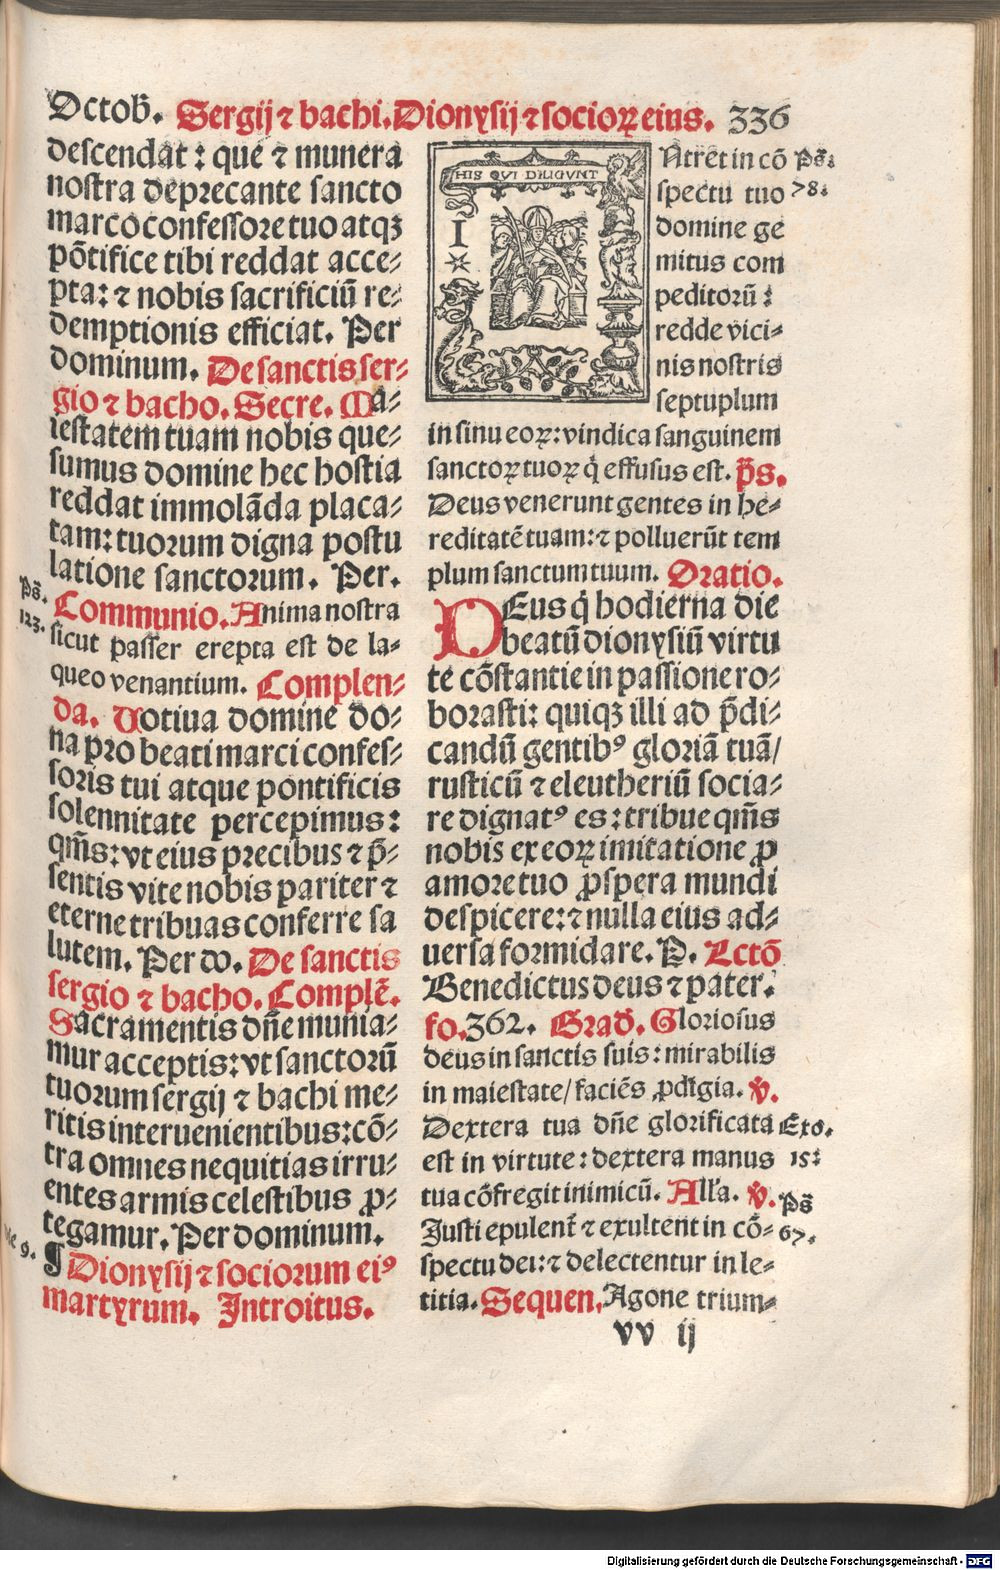 Octob̄. Sergij ⁊ bachi. Dionysij ⁊ socioꝝ eius. 336
descendat: que ⁊ munera
nostra deprecante sancto
marco confessore tuo atqꝫ
põtifice tibi reddat acce-
pta: ⁊ nobis sacrificiũ re-
demptionis efficiat. Per
dominum. De sanctis ser-
gio ⁊ bacho. Secre. Ma-
iestatem tuam nobis que-
sumus domine hec hostia
reddat immolãda placa-
tam: tuorum digna postu
latione sanctorum. Per.
Ps̄. 123.
Communio. Anima nostra
sicut passer erepta est de la-
queo venantium. Complen-
da. Uotiua domine do-
na pro beati marci confes-
soris tui atque pontificis
solennitate percepimus:
qm̄s: vt eius precibus ⁊ p̄-
sentis vite nobis pariter ⁊
eterne tribuas conferre sa
lutem. Per do. De sanctis
sergio ⁊ bacho. Complẽ.
Sacramentis dñe munia-
mur acceptis: vt sanctorũ
tuorum sergij ⁊ bachi me-
ritis interuenientibus: cõ-
tra omnes nequitias irru-
entes armis celestibus ꝓ-
tegamur. Per dominum.
9.
¶ Dionysij ⁊ sociorum eiꝰ
martyrum. Introitus.
HIS QVI DILIGVNT
I
Ntret in cõ Ps̄:
spectu tuo 78:
domine ge
mitus com
peditorũ:
redde vici-
nis nostris
septuplum
in sinu eoꝝ: vindica sanguinem
sanctoꝝ tuoꝝ q̇ effusus est. p̄s.
Deus venerunt gentes in he-
reditatẽ tuam: ⁊ polluerũt tem
plum sanctum tuum. Oratio.
DEus q̇ hodierna die
beatũ dionysiũ virtu
te cõstantie in passione ro-
borasti: quiqꝫ illi ad p̄di-
candũ gentibꝰ gloriã tuã/
rusticũ ⁊ eleutheriũ socia-
re dignatꝰ es: tribue qm̄s
nobis ex eoꝝ imitatione ꝓ
amore tuo ꝓspera mundi
despicere: ⁊ nulla eius ad-
uersa formidare. P. Lctõ
Benedictus deus ⁊ pater.
fo. 362. Grad̄. Gloriosus
deus in sanctis suis: mirabilis
in maiestate/ faciẽs ꝓdigia. ℣.
Dextera tua dñe glorificata Exo.
est in virtute: dextera manus 15:
tua cõfregit inimicũ. Alla. ℣. Ps̄
Justi epulent̃ ⁊ exultent in cõ- 67.
spectu dei: ⁊ delectentur in le-
titia. Sequen. Agone trium-
vv ij
Digitalisierung gefördert durch die Deutsche Forschungsgemeinschaft - DFG